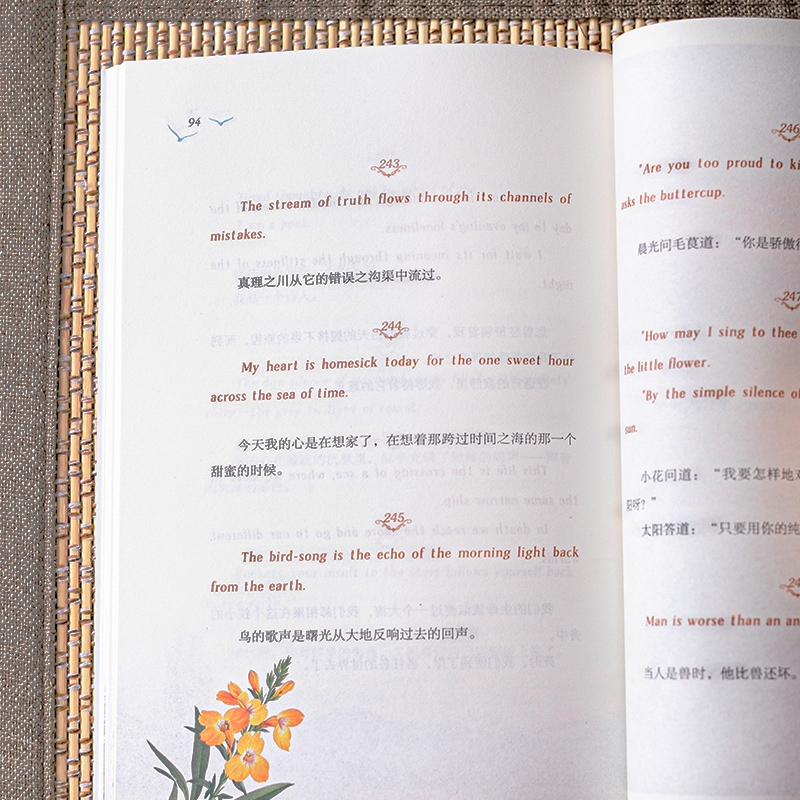 94
243
The stream of truth flows through its channels of
mistakes.
真理之川从它的错误之沟渠中流过。
244
My heart is homesick today for the one sweet hour
across the sea of time.
今天我的心是在想家了，在想着那跨过时间之海的那一个
甜蜜的时候。
245
The bird-song is the echo of the morning light back
from the earth.
鸟的歌声是曙光从大地反响过去的回声。
246
'Are you too proud to
asks the buttercup.
晨光问毛茛道：“你是骄傲
247
'How may I sing to thee
the little flower.
'By the simple silence
sun.
小花问道：“我要怎样地
阳呀？”
太阳答道：“只要用你的纯
Man is worse than an
当人是兽时，他比兽还坏。